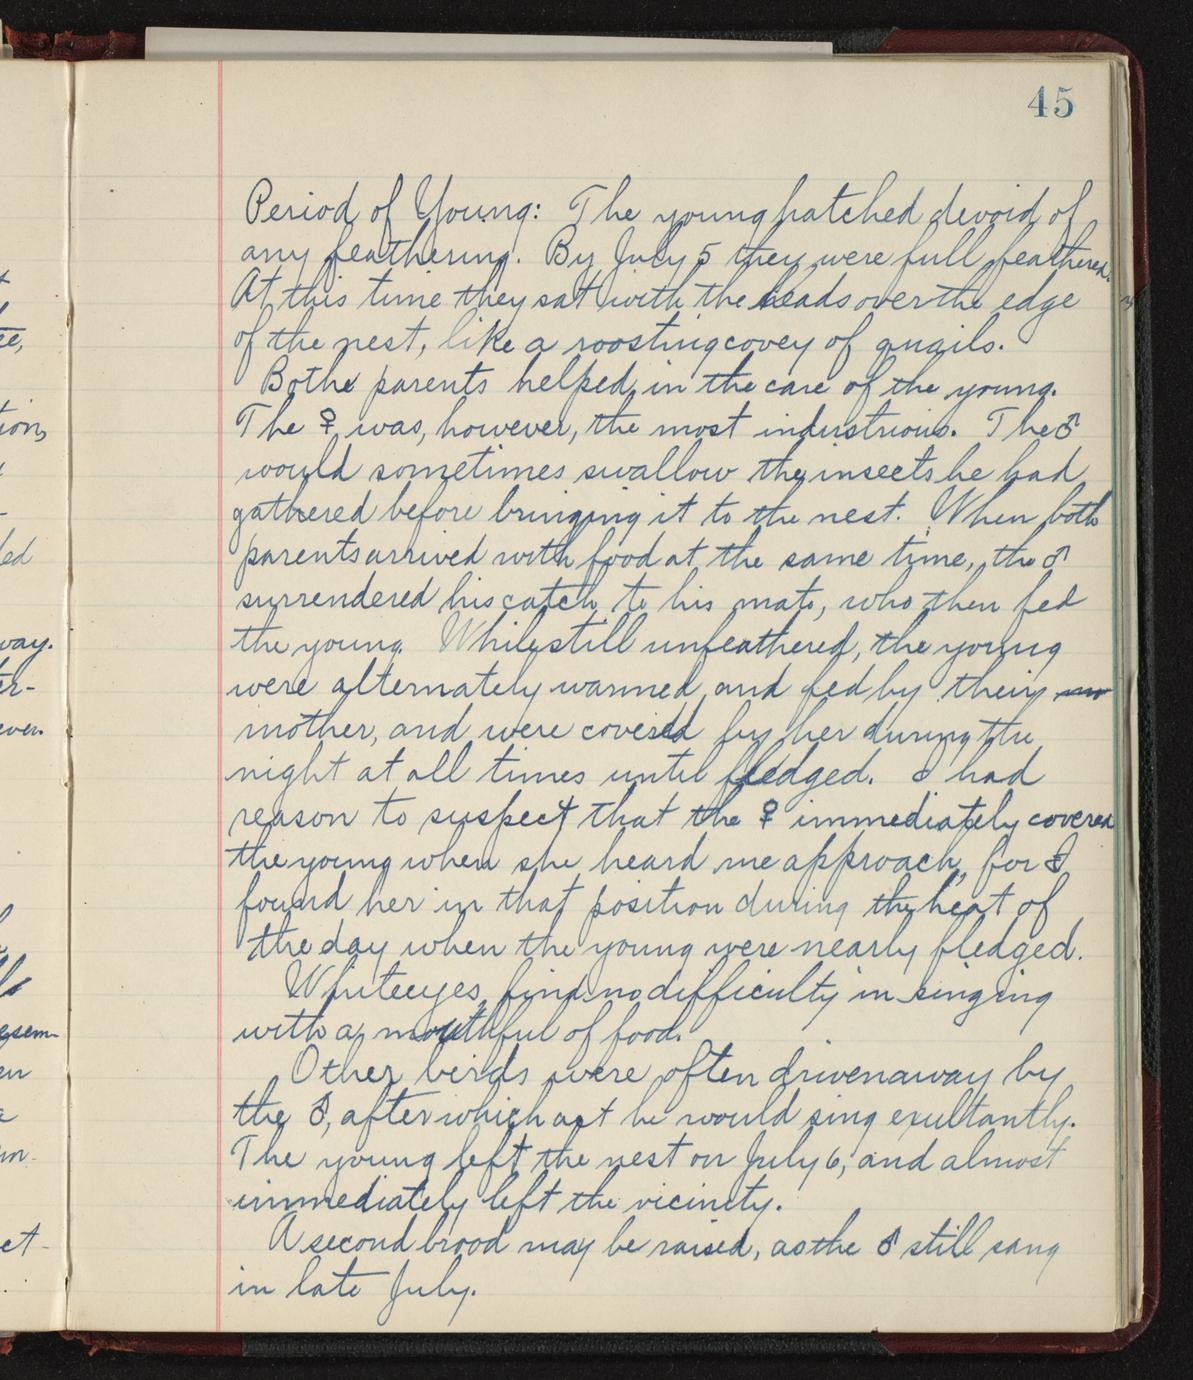 45
Period of Young: The young hatched devoid of
any feathering. By July 5 they were full feathered.
At this time they sat with the heads over the edge
of the nest, like a roosting covey of quails.
Bothe parents helped in the care of the young.
The ♀ was, however, the most industrious. The ♂
would sometimes swallow the insects he had
gathered before bringing it to the nest. When both
parents arrived with food at the same time, the ♂
surrendered his catch to his mate, who then fed
the young. While still unfeathered, the young
were alternately warmed and fed by their
mother, and were covered by her during the
night at all times until fledged. I had
reason to suspect that the ♀ immediately covered
the young when she heard me approach, for I
found her in that position during the heat of
the day when the young were nearly fledged.
Whiteeyes find no difficulty in singing
with a mouthful of food.
Other birds were often driven away by
the ♂, after which act he would sing exultantly.
The young left the nest on July 6, and almost
immediately left the vicinity.
A second brood may be raised, as the ♂ still sang
in late July.